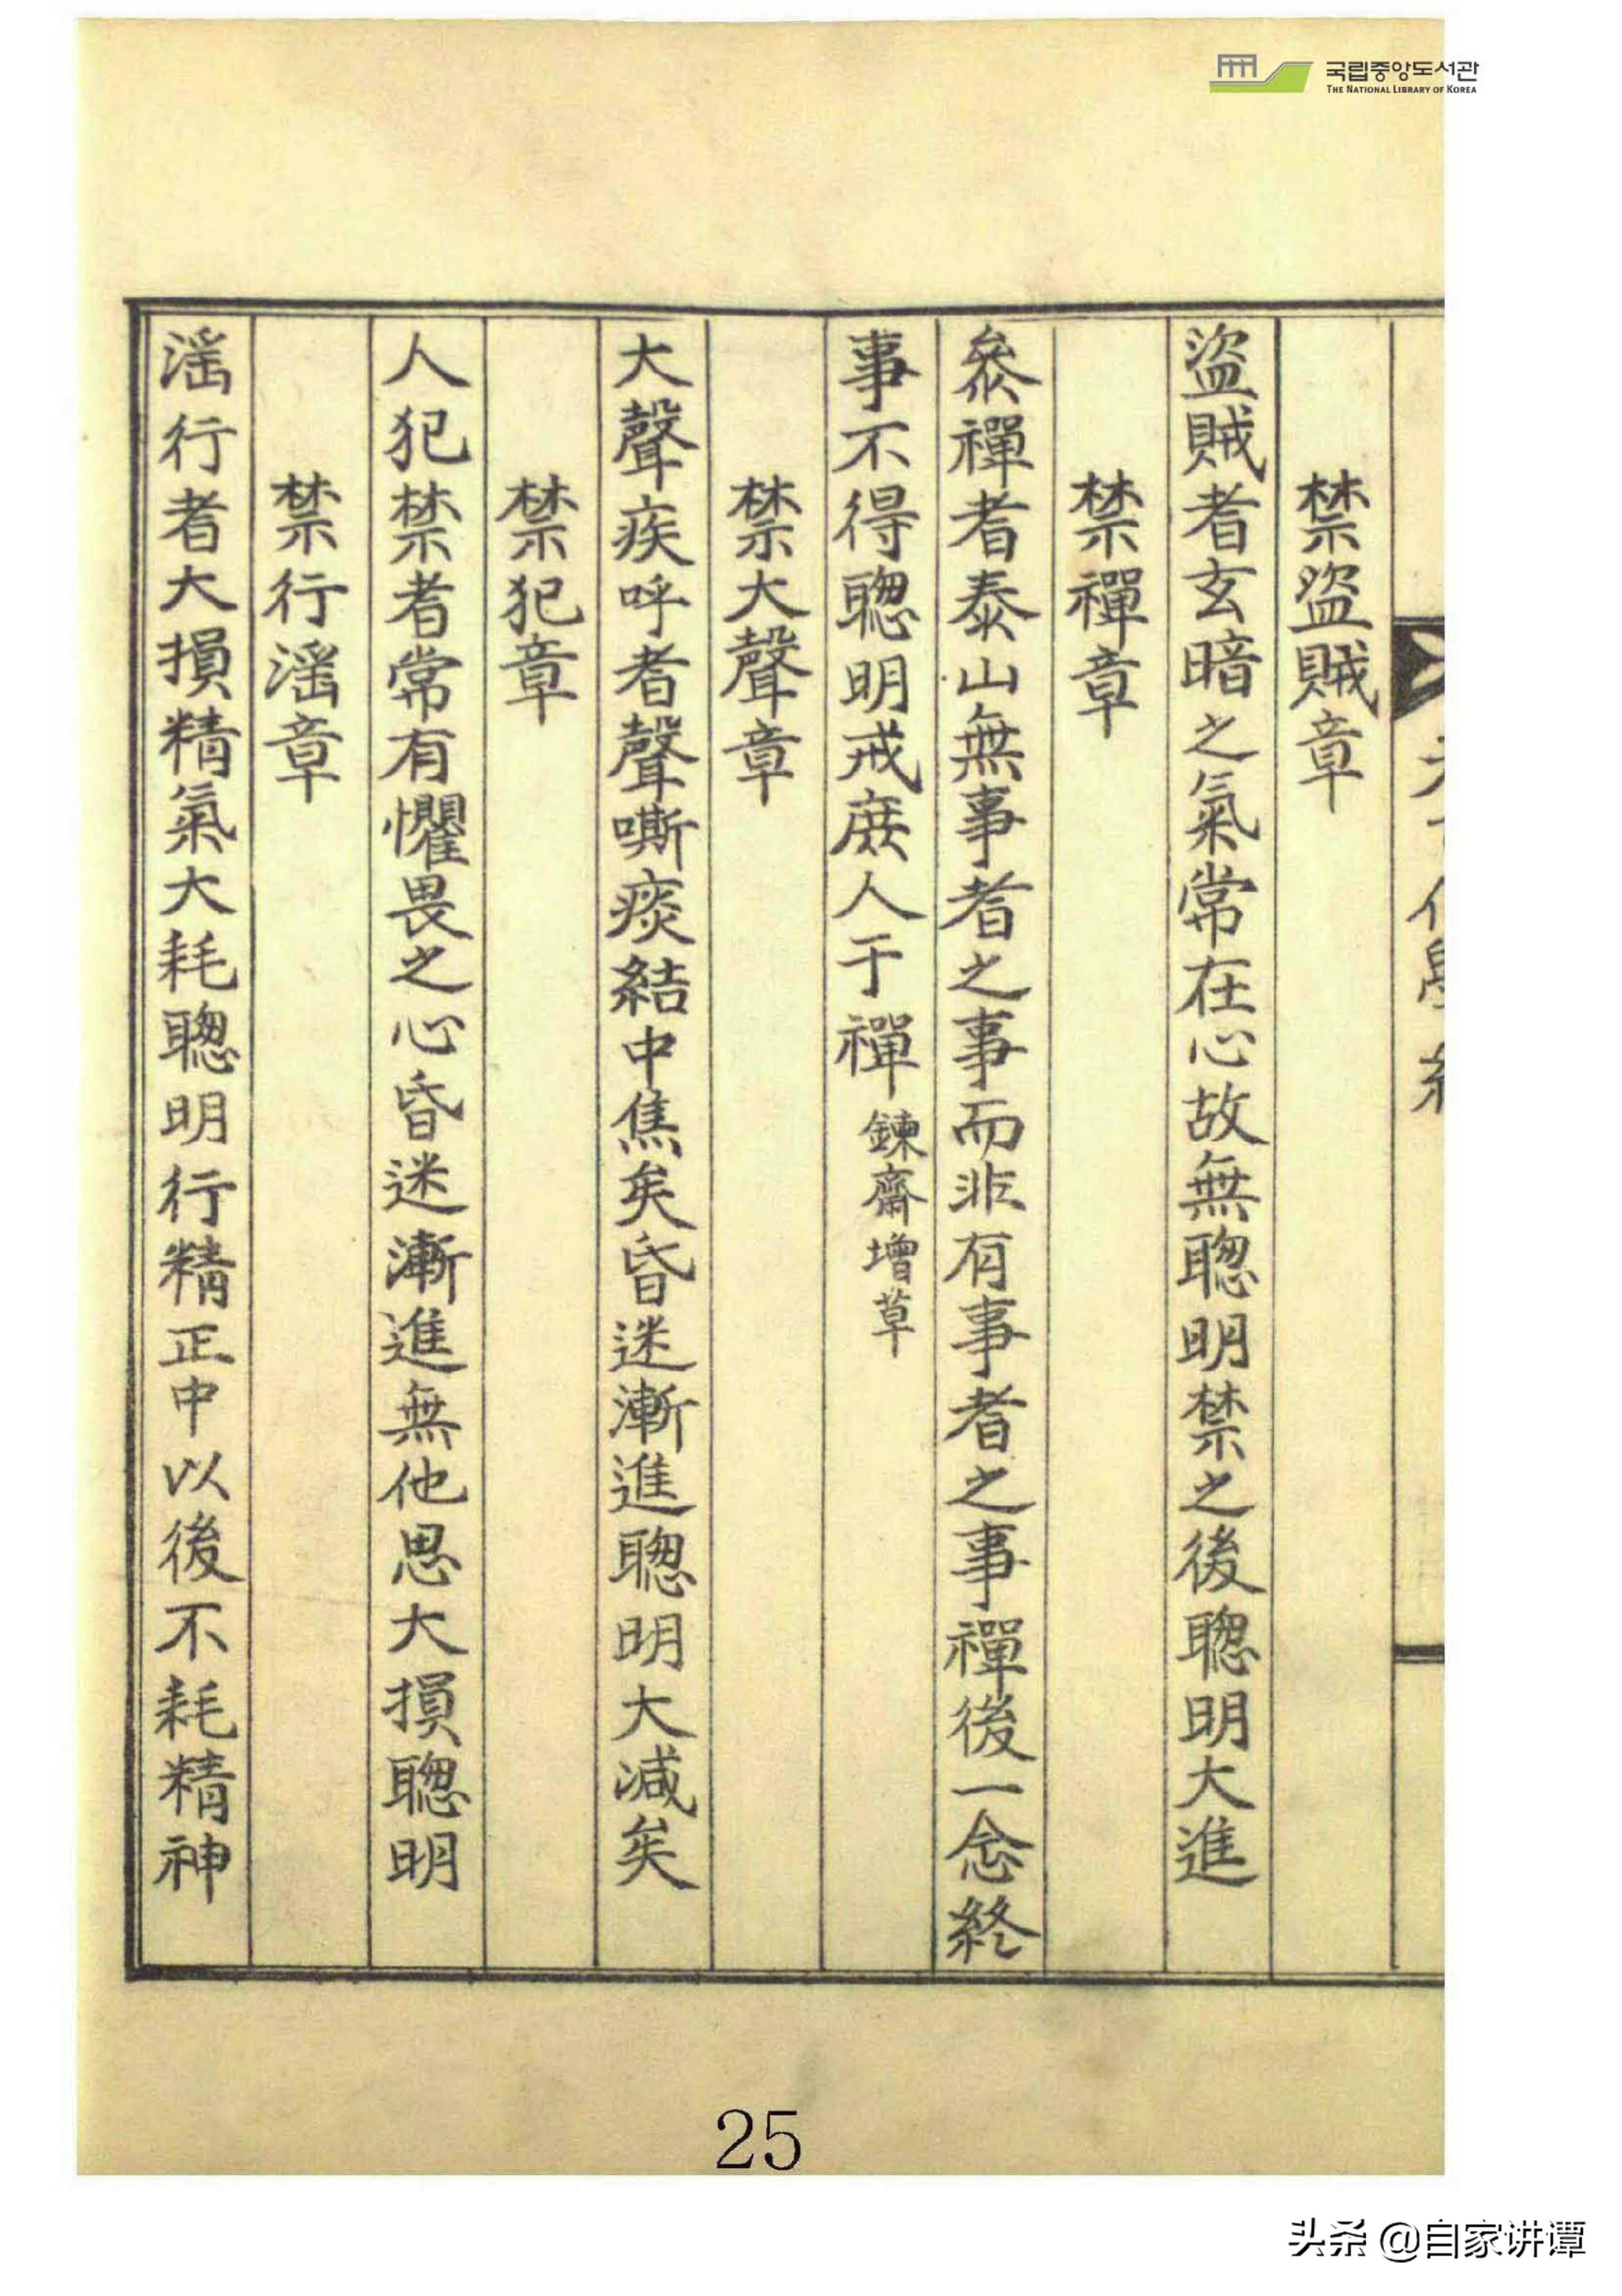 국립중앙도서관
THE NATIONAL LIBRARY OF KOREA
禁盜賊章
盜賊者玄暗之氣常在心故無聰明禁之後聰明大進
禁禪章
叅禪者泰山無事者之事而非有事者之事禪後一念終
事不得聰明戒庶人于禪鍊齋增草
禁大聲章
大聲疾呼者聲嘶痰結中焦矣昏迷漸進聰明大減矣
禁犯章
人犯禁者常有懼畏之心昏迷漸進無他思大損聰明
禁行滛章
滛行者大損精氣大耗聰明行精正中以後不耗精神
25
头条 @自家讲谭